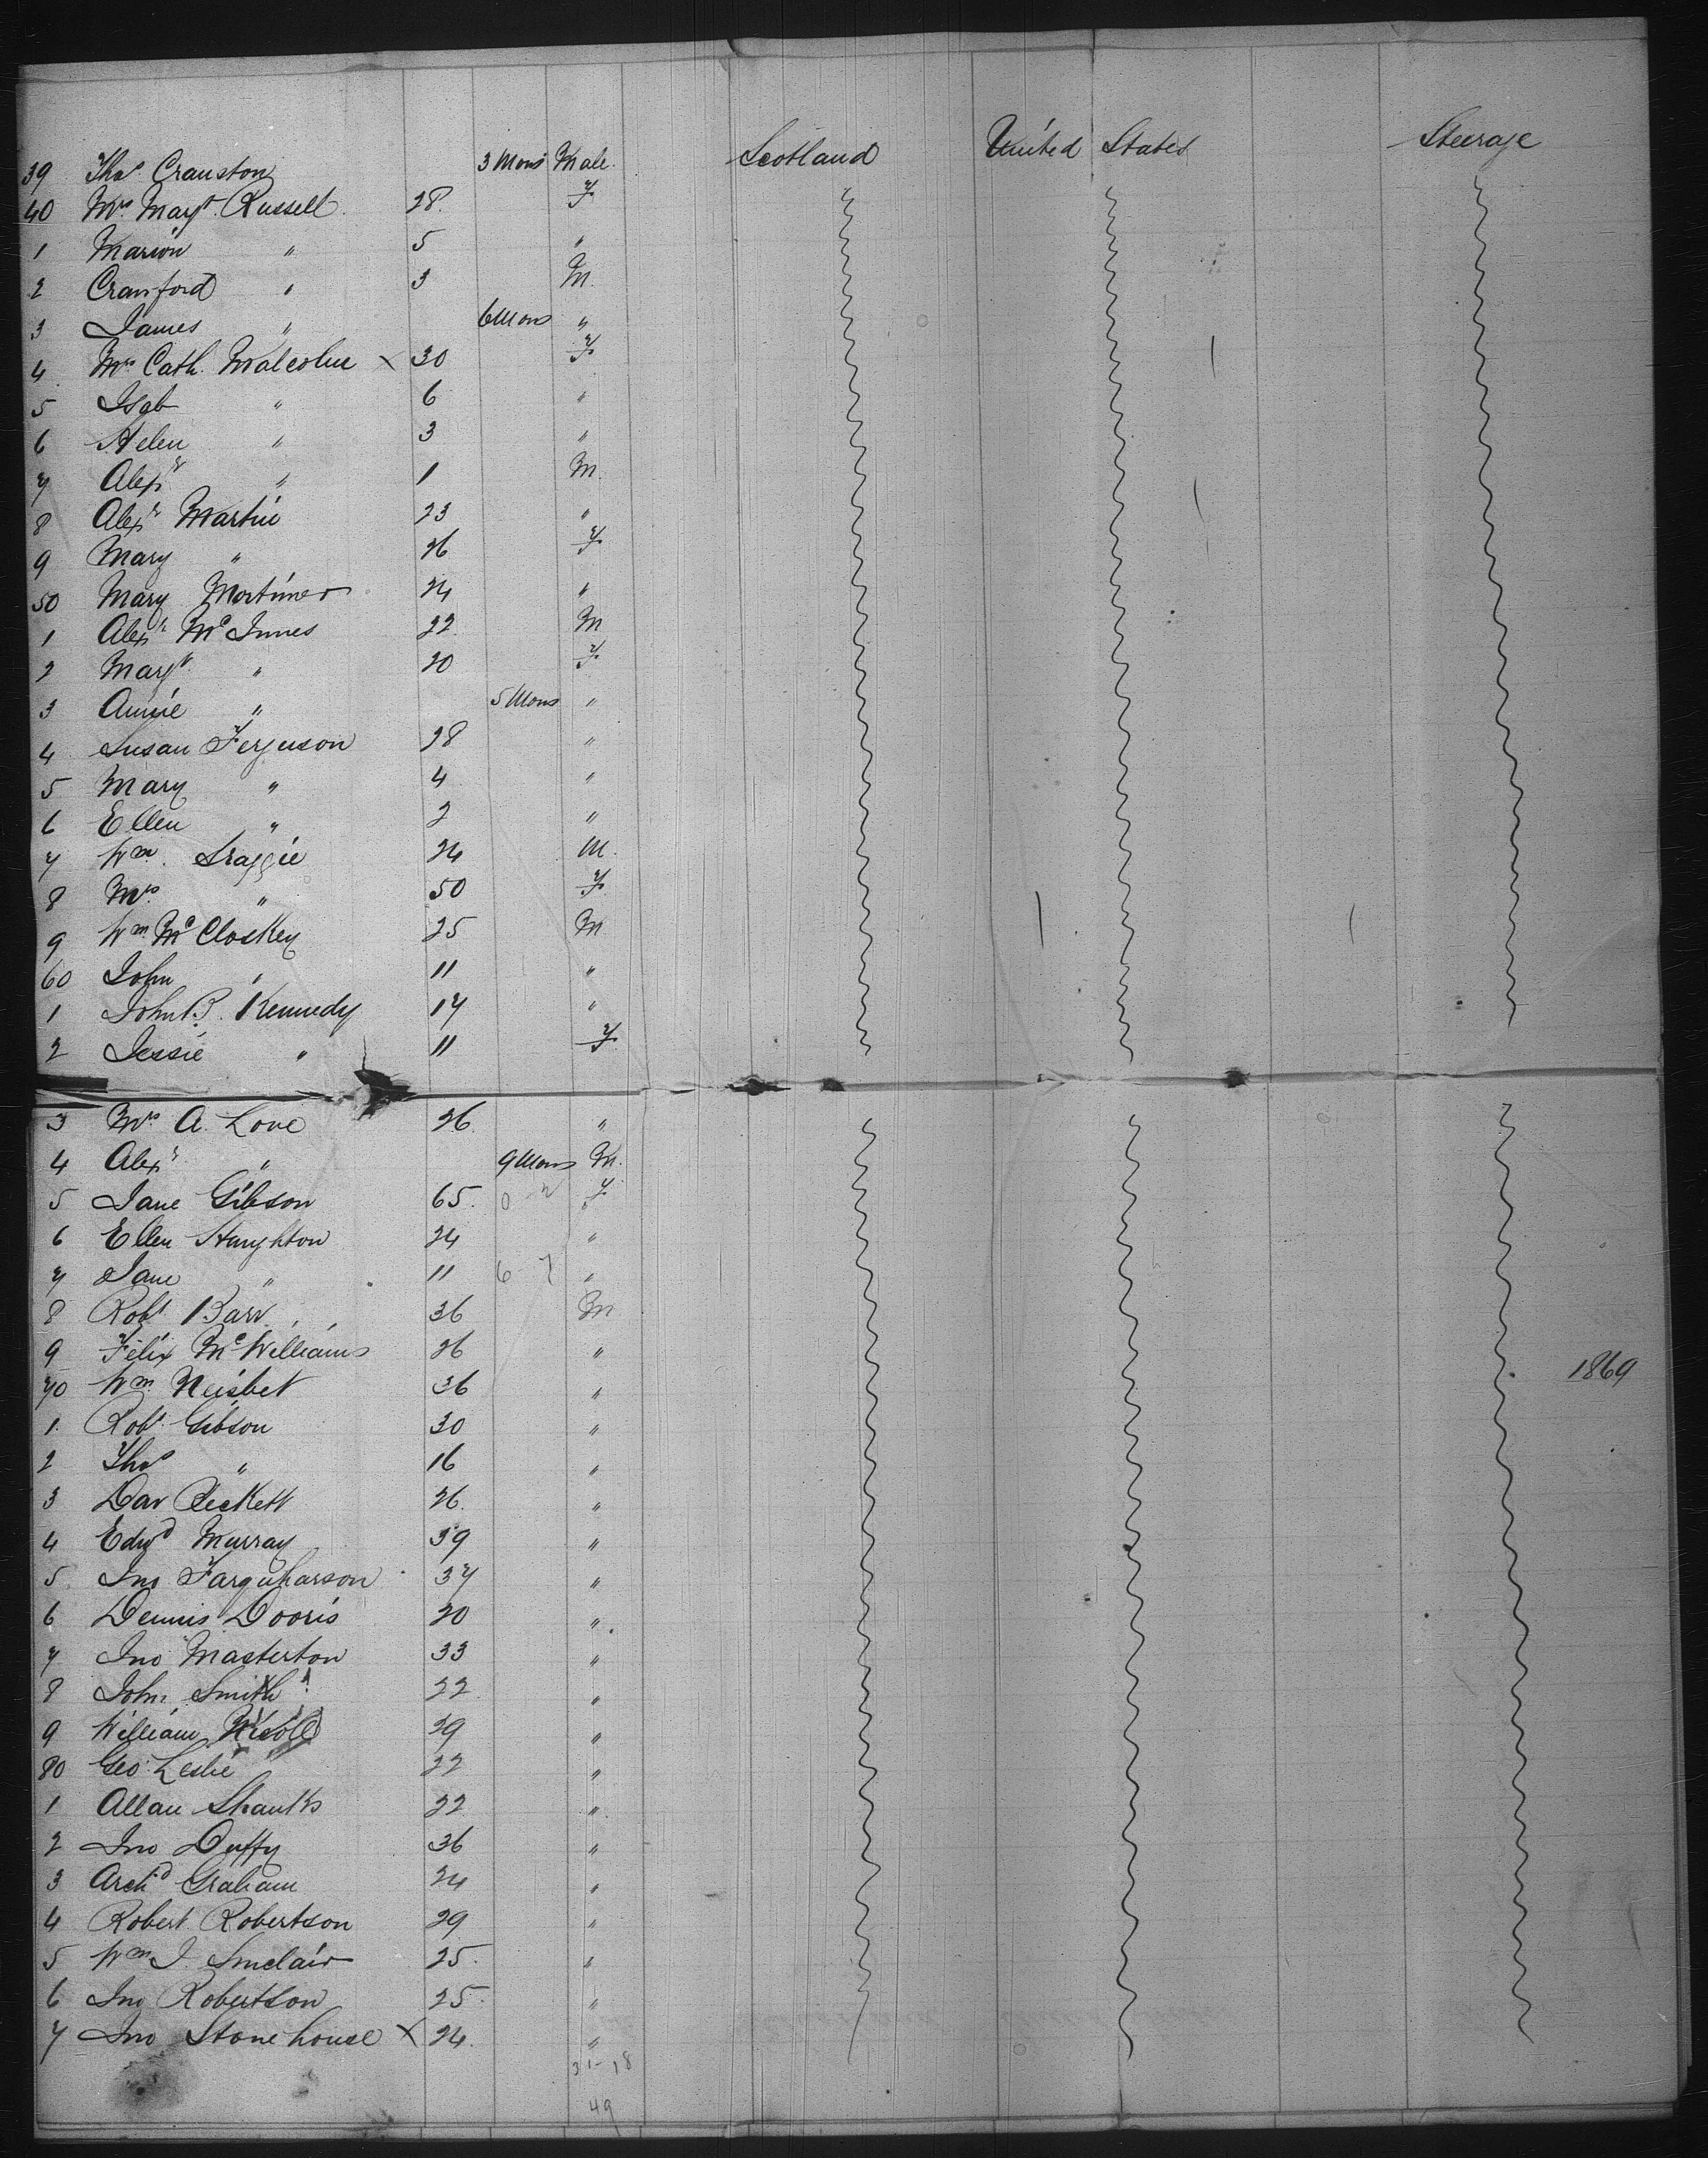 39 Thos Cranston 3 Mons Male Scotland United States Steerage
40 Mrs Margt Russell 28 F
1 Marion " 5 "
2 Crawford " 3 M
3 James " 6 Mons "
4 Mrs Cath. Malcolm x 30 F
5 Isab " 6 "
6 Helen " 3 "
7 Alexr " 1 M
8 Alexr Martin 23 "
9 Mary " 26 F
50 Mary Mortimer 24 "
1 Alexr McInnes 22 M
2 Margt " 20 F
3 Annie " 5 Mons "
4 Susan Ferguson 28 "
5 Mary " 4 "
6 Ellen " 2 "
7 Wm 24 M
8 Mrs " 50 F
9 Wm McCloskey 25 M
60 John " 11 "
1 John B. Kennedy 17 "
2 Jessie " 11 F
3 Mrs A. Love 26 "
4 Alexr " 9 Mons M.
5 Jane Gibson 65 F
6 Ellen Haughton 24 "
7 Jane " 11 6 7 "
8 Robt Barr 36 M
9 Felix McWilliams 26 "
70 Wm Neisbet 36 " 1869
1 Robt Gibson 30 "
2 Thos " 16 "
3 Dav Beckett 26 "
4 Edwd Murray 39 "
5 Jno Farquharson 37 "
6 Dennis Dooris 20 "
7 Jno Masterton 33 "
8 John Smith 22 "
9 William Nicoll 29 "
80 Geo Leslie 22 "
1 Allan Shanks 22 "
2 Jno Duffy 36 "
3 Archd Graham 24 "
4 Robert Robertson 29 "
5 Wm J. Sinclair 25 "
6 Jno Robertson 25 "
7 Jno Stonehouse x 24 "
31-18
49